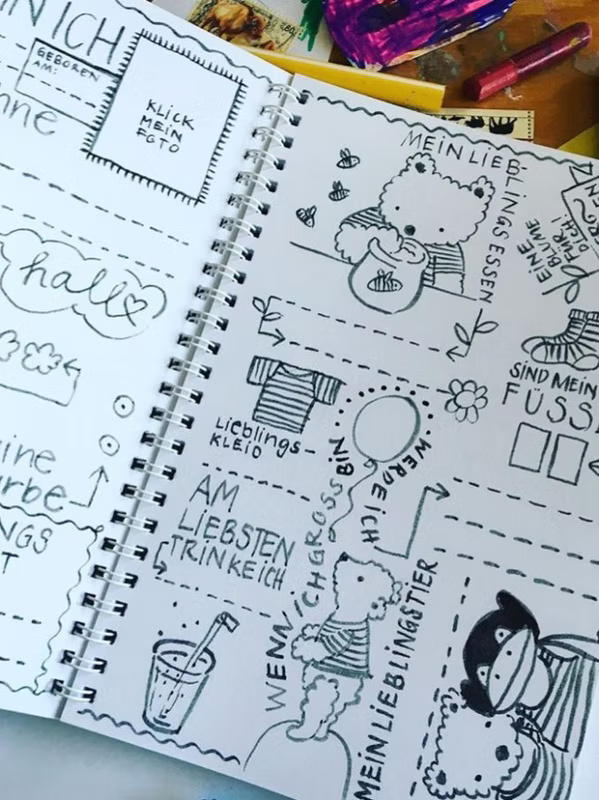 N ICH
GEBOREN
AM:
KLICK
MEIN
FOTO
hallo
eine
arbe
NGS
T
MEIN LIEB-
LINGSESSEN
EINE
BLUME
FÜR
DICH!
SIND MEIN
FÜSS
Lieblings-
KLEID
AM
LIEBSTEN
TRINKE ICH
WENN ICH GROSS BIN
WERDE ICH
MEIN LIEBLINGSTIER